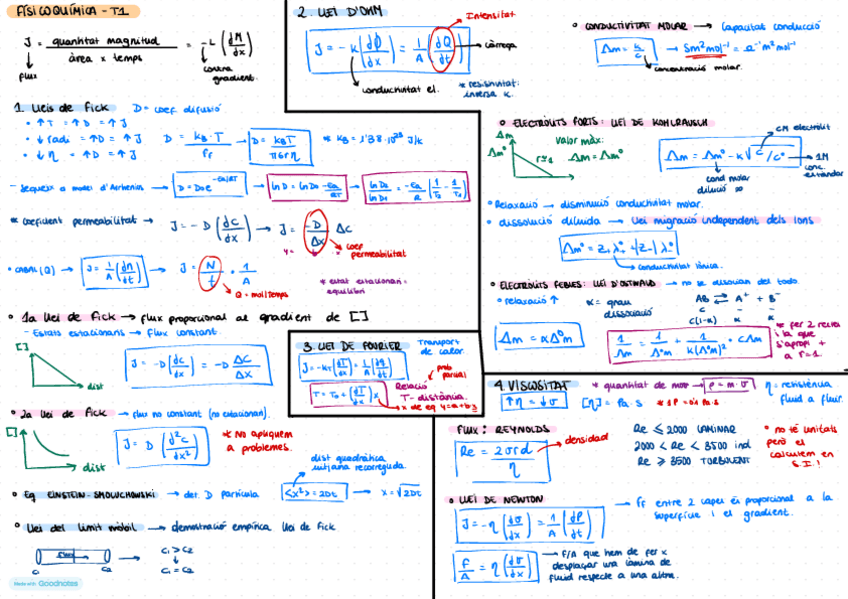 FÍSICOQUÍMICA - T1
J = quantitat magnitud / àrea x temps = -L (dM/dx)
flux
contra gradient.
1. Lleis de Fick D = coef difusió
• ↑T = ↑D = ↑J
• ↓radi = ↑D = ↑J D = kB·T / fr → D = kBT / π6rη * KB = 1'38·10²³ J/k
• ↓η = ↑D = ↑J
- Segueix a model d'Arrhenius → D = D₀e^-Ea/RT → ln D = ln D₀ - Ea/RT
* Coeficient permeabilitat → J = -D (dc/dx) → J = -D/Δx ΔC
coef permeabilitat
• Cabal (Q) → J = 1/A (dn/dt) → J = N/t · 1/A
Q = mol/temps
* estat estacionari = equilibri
• 1a Llei de Fick → flux proporcional al gradient de []
- Estats estacionaris → Flux constant.
[] dist
J = -D (dc/dx) = -D ΔC/Δx
• 2a Llei de Fick → flux no constant (no estacionari).
[] dist
J = D (d²c/dx²)
* No apliquem a problemes.
• Eq EINSTEIN-SMOLUCHOWSKI → det. D partícula
<x²> = 2Dt → x = √2Dt
dist quadràtica mitjana recorreguda.
• Llei del límit mòbil → demostració empírica llei de Fick
C₁ C₂
C₁ > C₂
C₁ = C₂
Made with Goodnotes
2. LLEI D'OHM
J = -k (dφ/dx) = 1/A (dQ/dt)
Intensitat
càrrega
conductivitat el.
* resistivitat: inversa k.
3. LLEI DE FOURIER
Transport de calor.
J = -kT (dT/dx) = 1/A (dQ/dt)
T = T₀ + (dT/dx) x
Relació T - distància.
x de eq y = a + bx
• CONDUCTIVITAT MOLAR → Capacitas conducció
Λm = k/c → Sm²mol⁻¹ = Ω⁻¹m²mol⁻¹
concentració molar.
• ELECTRÒLITS FORTS: LLEI DE KOHLRAUSCH
Λm
Λm°
r≈1
Valor màx:
Λm = Λm°
Λm = Λm° - K√C/C°
CM electròlit
1M conc. estàndar
cond molar dilució ∞
• Relaxació → disminució conductivitat molar.
• dissolució diluïda → Llei migració independent dels ions
Λm° = z₊λ₊° + |z₋|λ₋°
conductivitat iònica.
• ELECTRÒLITS FEBLES: LLEI D'OSTWALD → no es dissocien del todo.
• relaxació ↑ α = grau dissociació
AB ⇄ A⁺ + B⁻
C - -
c(1-α) α α
Λm = αΛ°m
1/Λm = 1/Λ°m + 1/K(Λ°m)² · CΛm
4. VISCOSITAT * quantitat de mov → p = m·v η = resistència fluid a fluir.
↑η = ↓v [η] = Pa·s
FLUX: REYNOLDS
Re = 2vrd / η
densidad
Re ≤ 2000 LAMINAR
2000 < Re < 3500 incl
Re ≥ 3500 TURBULENT
* no té unitats però el calculem en S.I!
• LLEI DE NEWTON
J = -η (dv/dx) = 1/A (dP/dt)
→ Ff entre 2 capes és proporcional a la superfície i el gradient.
F/A = η (dv/dx)
→ F/A que hem de fer x desplaçar una làmina de fluid respecte a una altra.